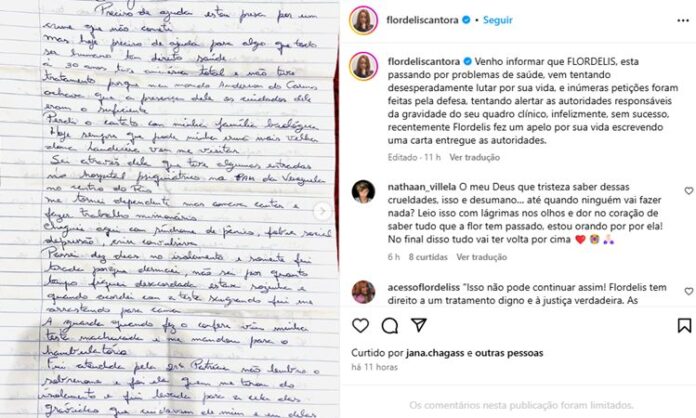 Preciso de ajuda estou presa por um
crime que não cometi
mas hoje preciso de ajuda para algo que todo
ser humano tem direito saúde
a 30 anos tive amnesia total e não tive
tratamento porque meu marido Anderson do Carmo
achava que a presença dele as cuidados dele
eram o suficiente
Perdi o contato com minha família biológica
Hoje sempre que pode minha irmã mais velha
vem me visitar
Sei através dela que tive algumas entradas
no hospital psiquiátrico na da Venezuela
no centro do Rio
me tornei dependente mas cantar e
fazer trabalho missionário
cheguei aqui com síndrome de pânico, fobia social
depressão, crise convulsiva
Passei dez dias no isolamento e somente fui
tirada porque desmaiei, não sei por quanto
tempo fiquei desacordada estava sozinha e
quando acordei com a testa sangrando fui me
arrastando para cama
A guarda quando fez o confere viu minha
testa machucada e me mandou para o
hambulatório
Fui atendida pela Patricia não lembro o
sobrenome e foi ela quem me tirou do
isolamento e fui levada para a cela das
grávidas que cuidavam de mim e eu delas
flordeliscantora • Seguir
flordeliscantora Venho informar que FLORDELIS, esta
passando por problemas de saúde, vem tentando
desesperadamente lutar por sua vida, e inúmeras petições foram
feitas pela defesa, tentando alertar as autoridades responsáveis
da gravidade do seu quadro clínico, infelizmente, sem sucesso,
recentemente Flordelis fez um apelo por sua vida escrevendo
uma carta entregue as autoridades.
Editado · 11 h Ver tradução
nathaan_villela O meu Deus que tristeza saber dessas
crueldades, isso e desumano... até quando ninguém vai fazer
nada? Leio isso com lágrimas nos olhos e dor no coração de
saber tudo que a flor tem passado, estou orando por por ela!
No final disso tudo vai ter volta por cima ❤️😭🙏🏻
6 h 8 curtidas Ver tradução
acessoflordeliss "Isso não pode continuar assim! Flordelis tem
direito a um tratamento digno e à justiça verdadeira. As
Curtido por jana.chagass e outras pessoas
há 11 horas
Os comentários nesta publicação foram limitados.